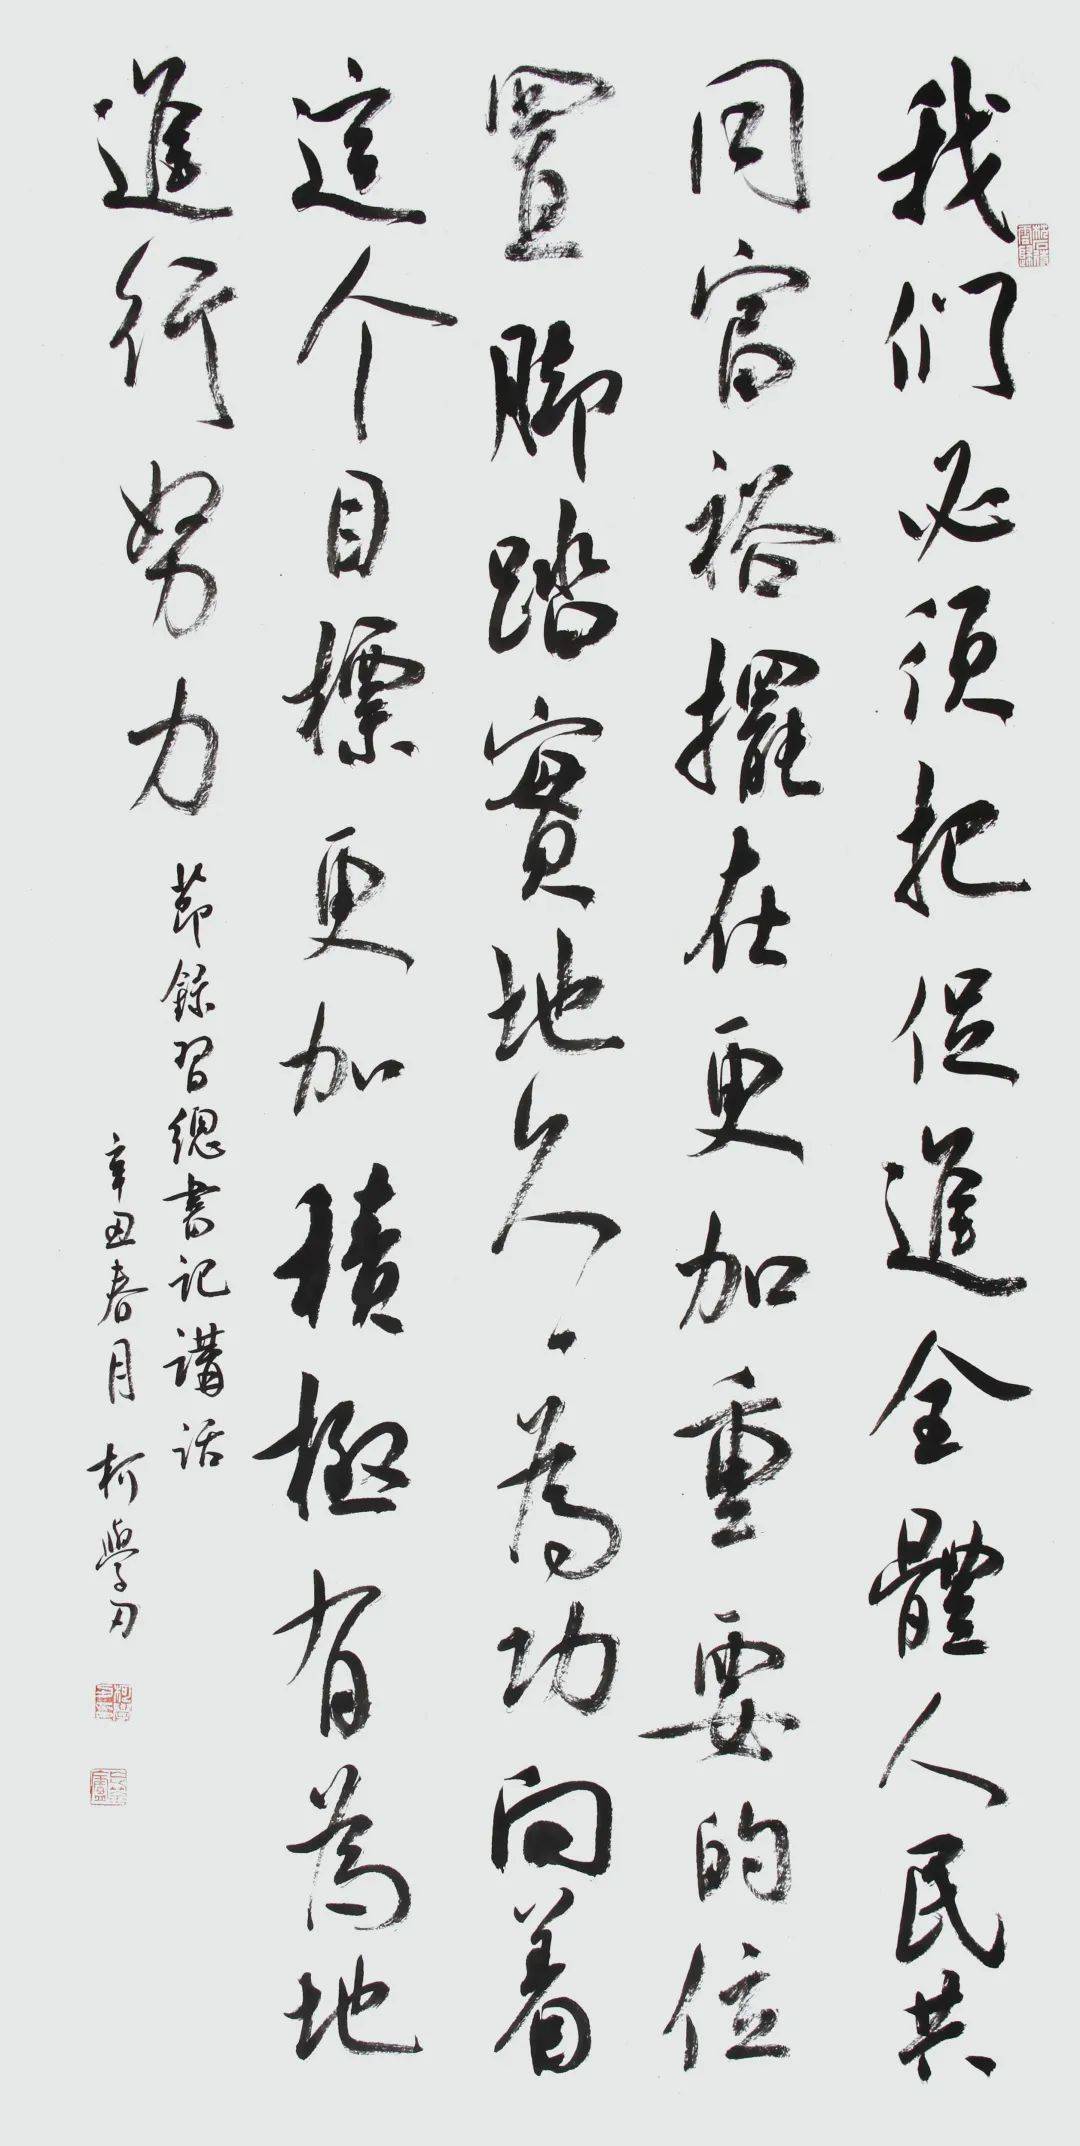 我们必须把促進全體人民共
同富裕擺在更加重要的位
置脚踏實地久〻為功向着
這个目標更加積極有為地
進行努力
節錄習總書記講話
辛丑春月 柯學刃